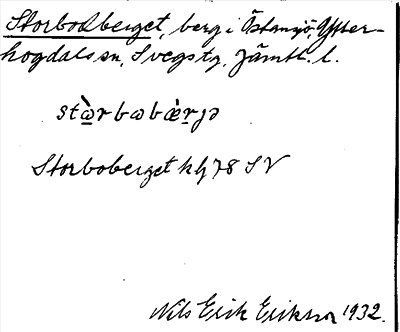 Storbodberget, berg i Östansjö, Ytter-
hogdals sn, Svegs tg, Jämtl. l.
stὼ̲rbωbæ̀r̲jə
Storboberget kbl 78 SV
Nils Erik Erikson 1932.